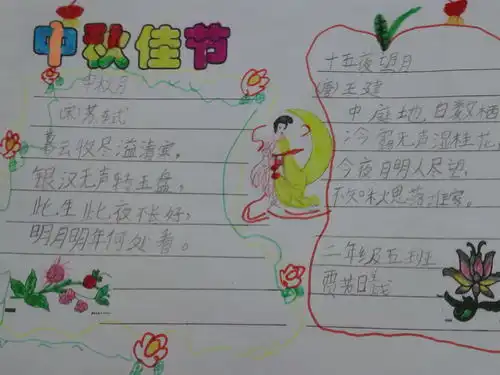 中秋佳节
中秋月
(宋)苏轼
暮云收尽溢清寒,
银汉无声转玉盘,
此生此夜不长好,
明月明年何处看。
十五夜望月
(唐)王建
中庭地白数栖
冷露无声湿桂花,
今夜月明人尽望,
不知秋思落谁家。
二年级五班
贾